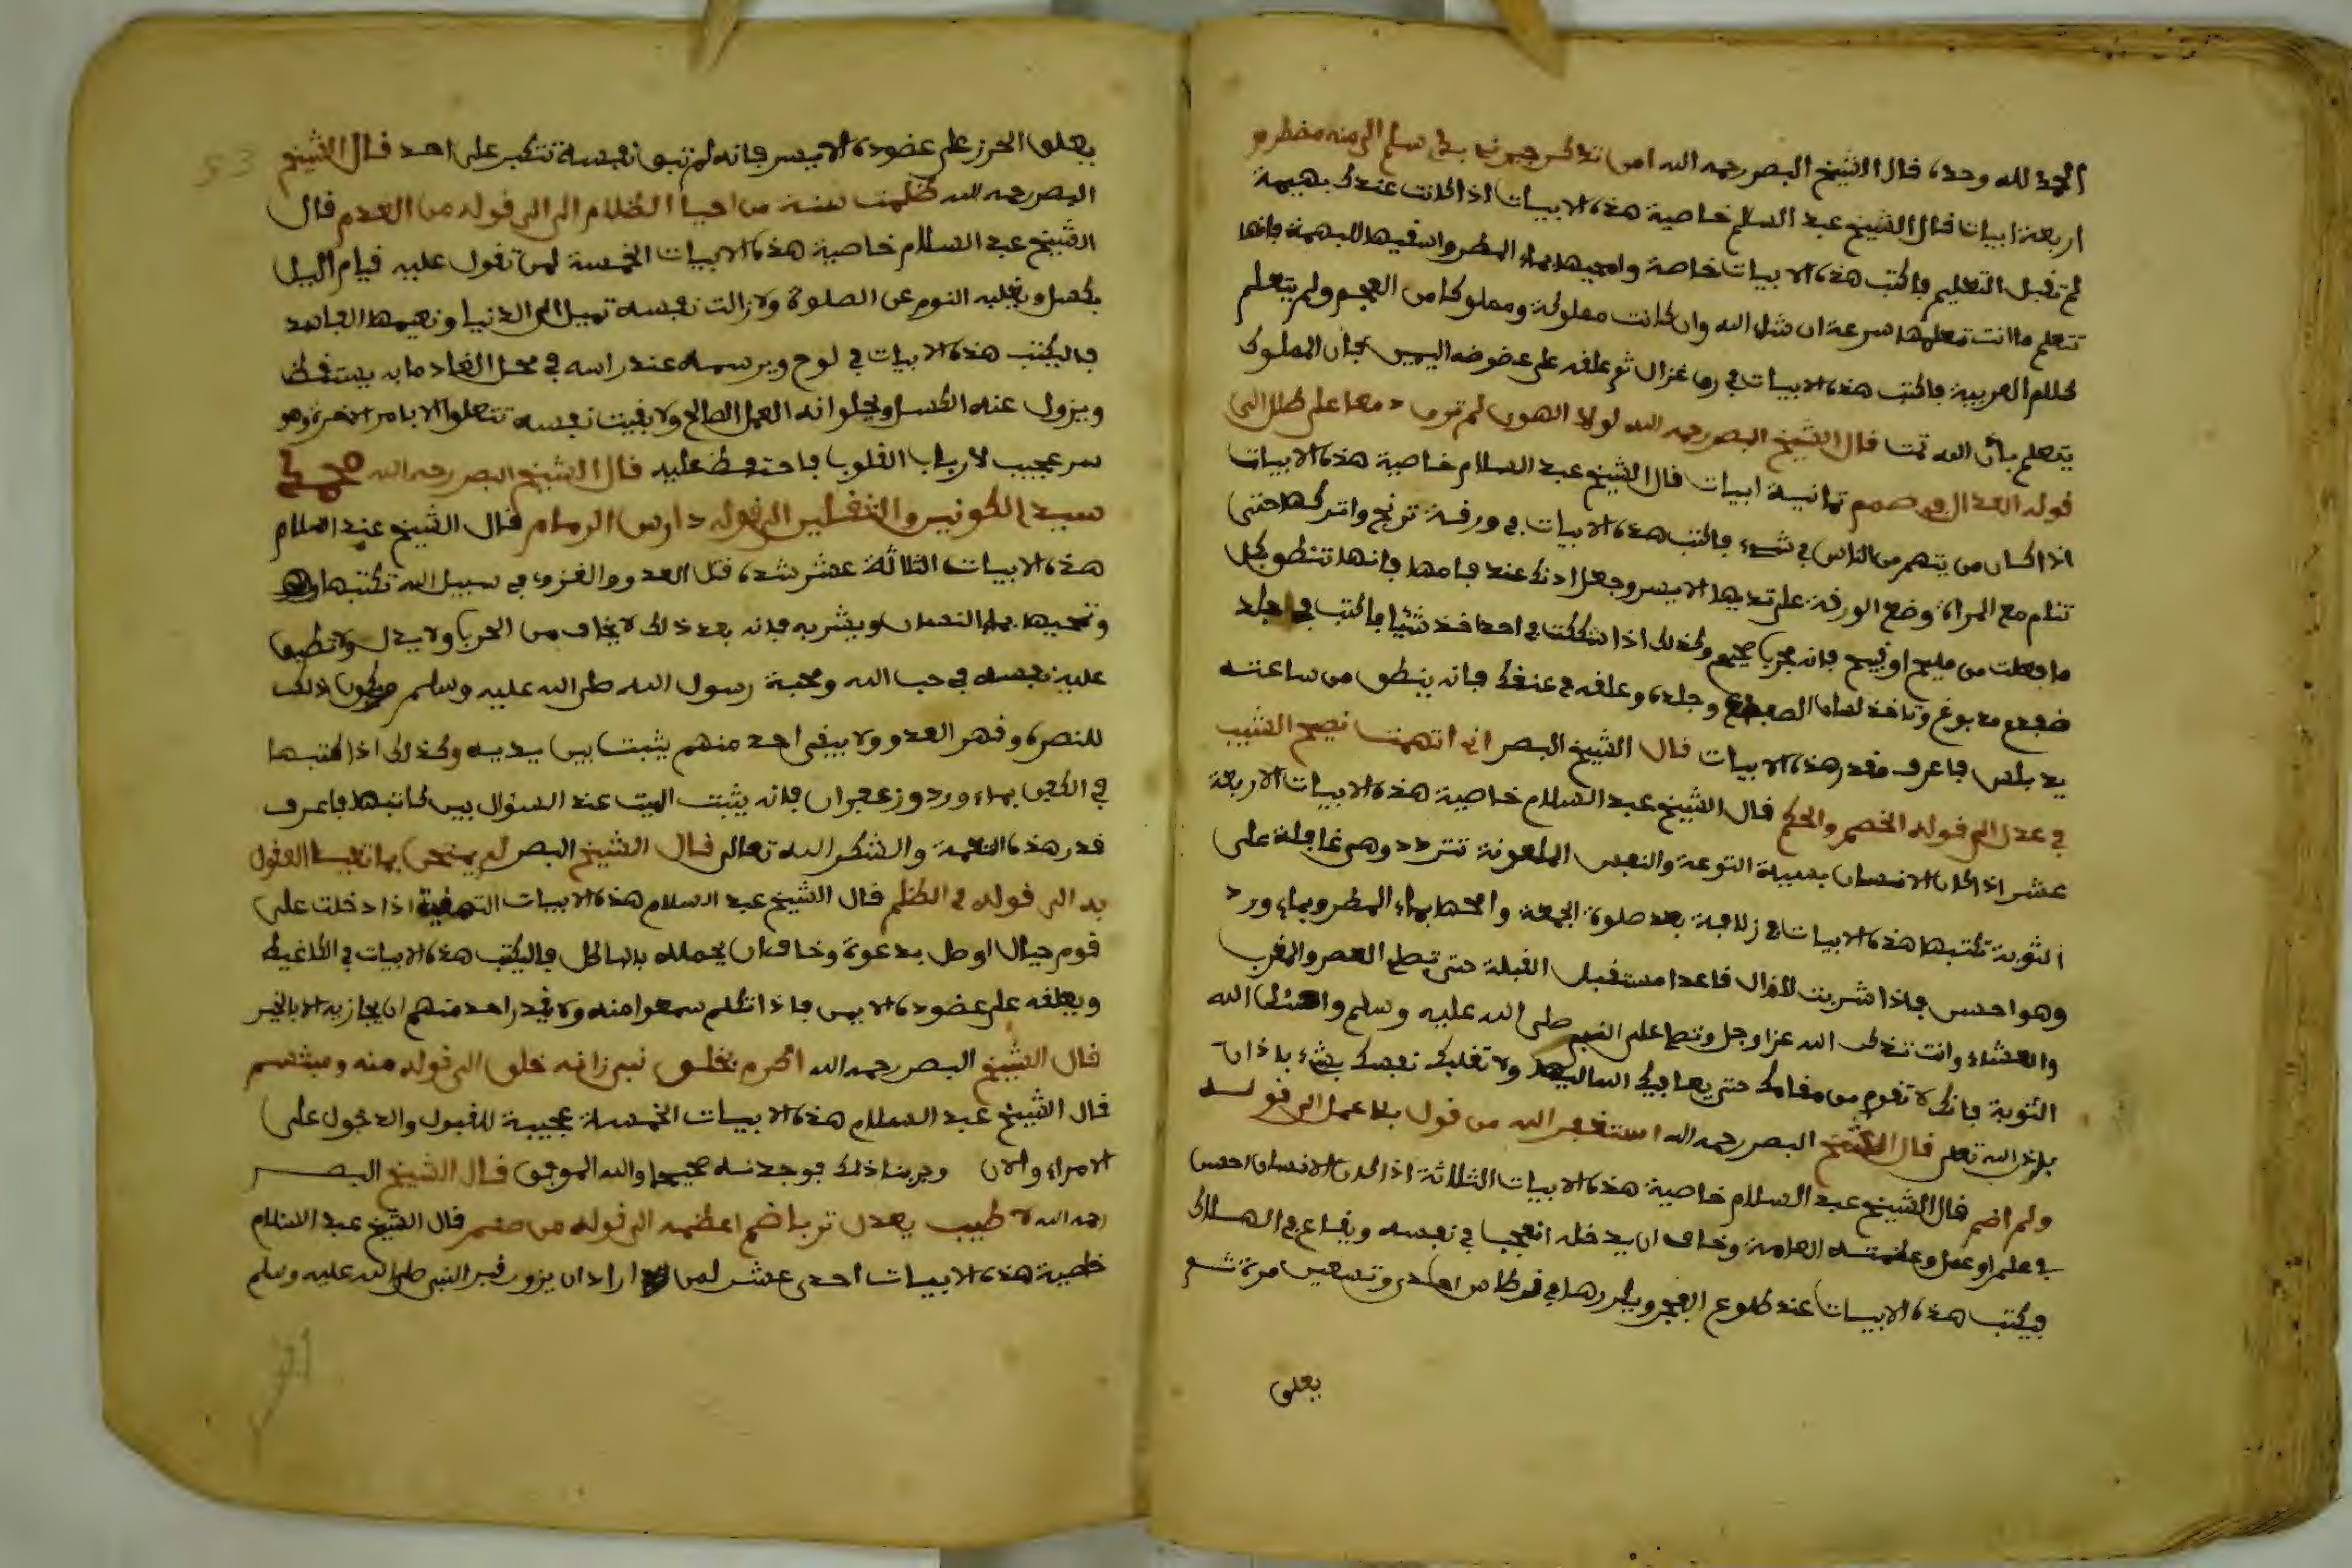 الحمد لله وحده قال الشيخ البصر رحمه الله امن تذكر جيران بذي سلم الى منه مضطرم
اربعة ابيات قال الشيخ عبد السلام خاصية هذه الابيات اذا كانت عندك بهيمة
لم تقبل التعليم فاكتب هذه الابيات خاصة وامحيها بماء المطر واسقيها للبهمة فانها
تتعلم ما انت تعلمها سرعة ان شاء الله وان كانت مملوكة ومملوكا من العجم ولم يتعلم
كلام العربية فاكتب هذه الابيات في رق غزال ثم علقه على عضوضه اليمين فان المملوك
يتعلم باذن الله تمت قال الشيخ البصر رحمه الله لولا الهوى لم ترق دمعا على طلل الى
قوله العذال في صمم ثمانية ابيات قال الشيخ عبد السلام خاصية هذه الابيات
اذا كان من يتهم من الناس في شيء فاكتب هذه الابيات في ورقة ترنج واتركها حتى
تنام مع المراة وضع الورقة على ثديها الايسر وجعل اذنك عند فامها فانها تنطق بكل
ما فعلت من مليح او قبيح فانه مجرب صحيح وكذلك اذا شككت في احد اخذ شيئا فاكتب في جلد
ضفدع مدبوغ وتاخذ لسان الضفدع وجلده وعلقه في عنقك فانه ينطق من ساعته
فاعرف قدر هذه الابيات قال الشيخ البصر اني اتهمت نصيح الشيب
في عذل الى قوله الخصم والحكم قال الشيخ عبد السلام خاصية هذه الابيات الاربعة
عشر اذا كان الانسان بسبيلة التوعة والنفس الملعونة تتردد وهي غافلة على
التوبة تكتبها هذه الابيات في زلافة بعد صلوة الجمعة وامحها بماء المطر وبماء ورد
وهو احسن فاذا شربت لازال قاعدا مستقبل القبلة حتى تصلي العصر والمغرب
والعشاء وانت تذكر الله عز وجل وتصلي على النبي صلى الله عليه وسلم واسئل الله
التوبة فانك لا تقوم من مقامك حتى يعافيك الله ولا تغلبك نفسك بشيء باذن
باذن الله تعلى قال الشيخ البصر رحمه الله استغفر الله من قول بلا عمل الى قوله
ولم اصم قال الشيخ عبد السلام خاصية هذه الابيات الثلاثة اذا كان الانسان احسن
في علم او عمل وعظمته العامة وخاف ان يدخله العجب في نفسه ويقاع في الهلاك
فيكتب هذه الابيات عند طلوع الفجر ويكررها في قرطاس احدى وتسعين مرة ثم
يعلق
يعلق الحرز على عضوده الايسر فانه لم تبق نفسه تتكبر على احد قال الشيخ
البصر رحمه الله ظلمت سنة من احيا الظلام الى الى قوله من العدم قال
الشيخ عبد السلام خاصية هذه الابيات الخمسة لمن تقول عليه قيام اليل
بكسل ويغلبه النوم عن الصلوة ولا زالت نفسه تميل الى الدنيا ونعيمها الفاسد
فاليكتب هذه الابيات في لوح ويرسمه عند راسه في محل الرقاد ما به يستقظ
ويزول عنه الكسل ويحلو انه العمل الصالح ولا بقيت نفسه تتعلق الا بامر الاخرة وهو
سر عجيب لارباب القلوب فاحتفظ عليه قال الشيخ البصر رحمه الله محمد
سيد الكونين والثقلين الى قوله دارس الرمم قال الشيخ عبد السلام
هذه الابيات الثلاثة عشر شده قتل العدو والغزو في سبيل الله تكتبها
وتمحيها بماء النعمان ويشربه فانه بعد ذلك لا يخاف من الحرب ولا يذل ولا تطيق
عليه نفسه في حب الله ومحبة رسول الله صلى الله عليه وسلم ويكون ذلك
للنصرة وقهر العدو ولا يبقى احد منهم يثبت بين يديه وكذلك اذا كتبها
في الكفن بماء ورد وزعفران فانه يثبت الميت عند السؤال بين كاتبها فاعرف
قدر هذه النعمة والشكر الله تعالى قال الشيخ البصر لم يمتحن بما تعيا العقول
به الى قوله في الظلم قال الشيخ عبد السلام هذه الابيات اذا دخلت على
قوم جهال او طل بدعوة وخاف ان يحمله بالباطل فاليكتب هذه الابيات في الكاغيط
ويعلقه على عضوده الايمن فاذا تكلم سمعوا منه ولا يقدر احد منهم ان يجازيه الا بالخير
قال الشيخ البصر رحمه الله اكرم بخلق نبي زانه خلق الى قوله منه ومبتسم
قال الشيخ عبد السلام هذه الابيات الخمسة عجيبة للقبول والدخول على
الامراء والان وجربنا ذلك فوجدنه صحيحا والله الموفق قال الشيخ البصر
رحمه الله لا طيب يعدل تربا ضم اعظمه الى قوله من صمم قال الشيخ عبد السلام
خاصية هذه الابيات احدى عشر لمن اراد ان يزور قبر النبي صلى الله عليه وسلم